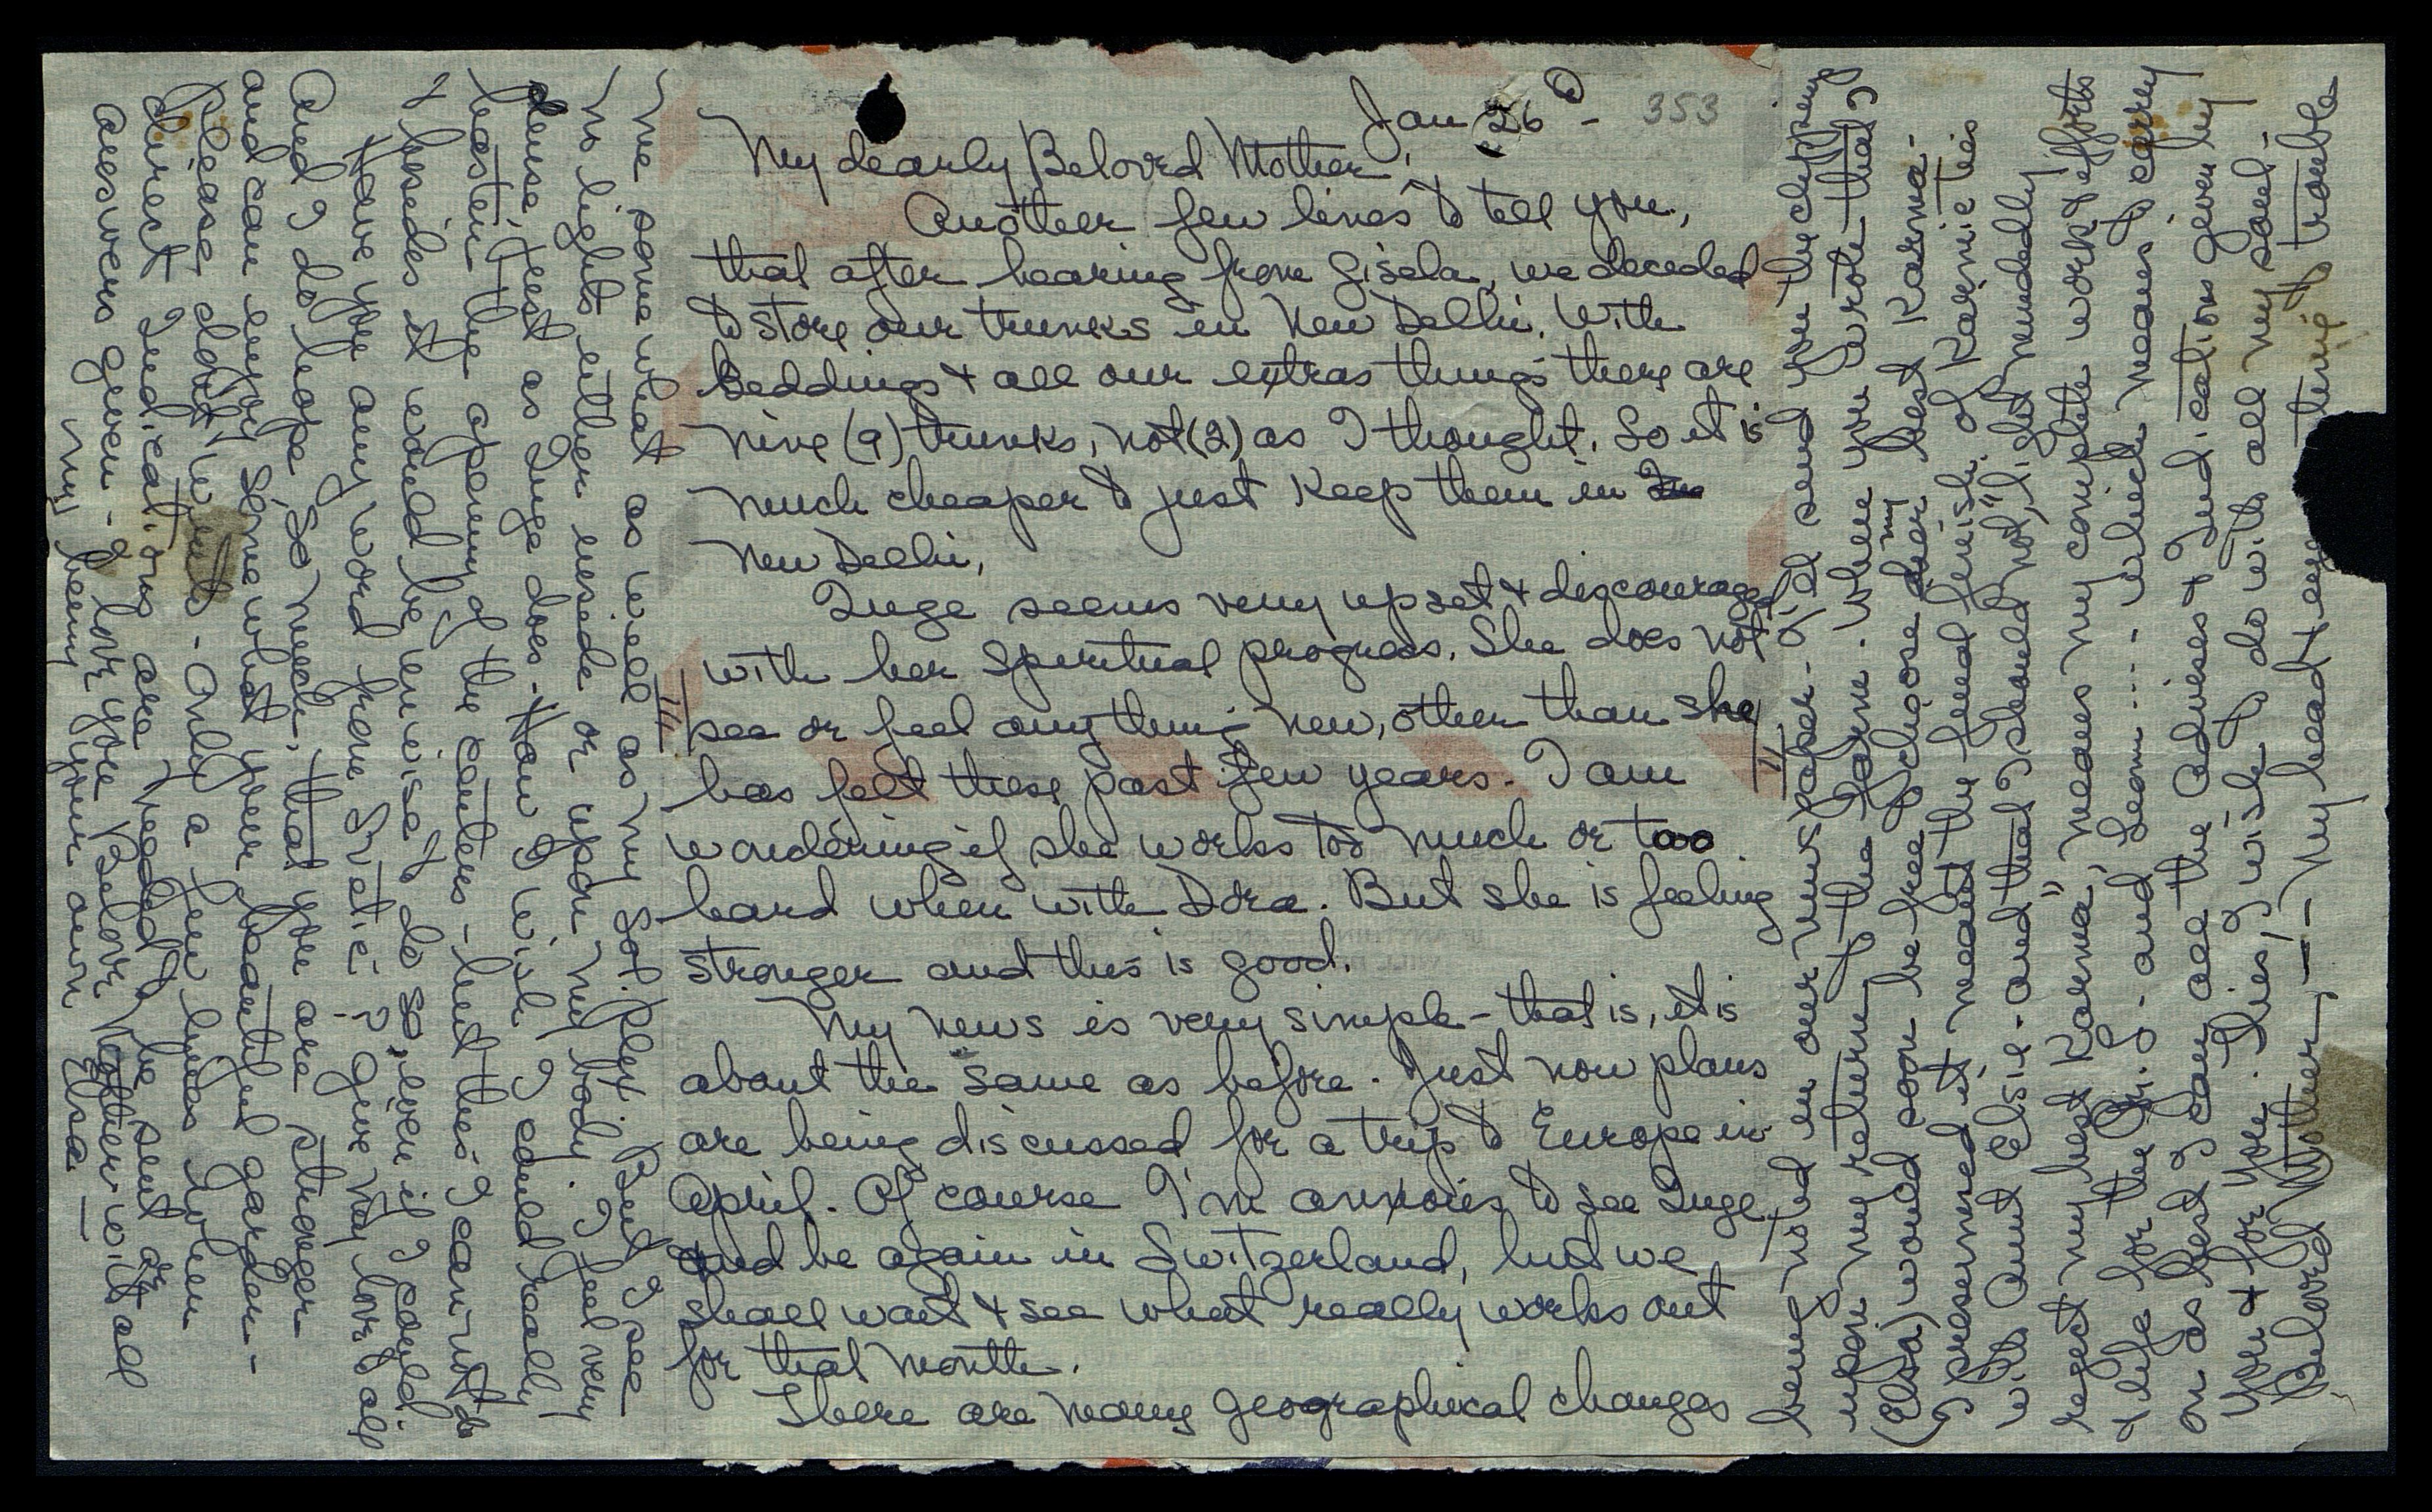 Jan 26th - 353
My dearly Beloved Mother,
Another few lines to tell you,
that after hearing from Gisela, we decided
to store our trunks in New Delhi. With
Beddings & all our extras things there are
nine (9) trunks, not (2) as I thought. So it is
much cheaper to just keep them in
New Delhi,
Inge seems very upset & discouraged
with her Spiritual progress. She does not
see or feel anything new, other than she
has felt these past few years. I am
wondering if she works too much or too
hard when with Dora. But she is feeling
stronger and this is good.
My news is very simple - that is, it is
about the same as before. Just now plans
are being discussed for a trip to Europe in
April. Of course I'm anxious to see Inge
and be again in Switzerland, but we
shall wait & see what really works out
for that month.
There are many geographical changes
II
being noted in our newspaper. I'll send you the clippings
upon my return to the Farm. When you wrote that I
(Elsa) would soon be free to choose my best Karma -
I presumed it meant the final finish of Karmic ties
with Aunt Elsie - and that I should not, "light mindedly
reject my best Karma", means my complete work & efforts
& life for the Gr. L. and Leom.... which means to carry
on as best I can all the Advises & Indications given by
you & for you. This, I wish to do with all my soul -
Beloved Mother, — my head & time of trouble
III
me somewhat as well as my Sol. Plex. But I see
no lights either inside or upon my body. I feel very
dense, just as Inge does. How I wish I could really
hasten the opening of the centers - but this I can not do
& besides it would be unwise to do so, even if I could.
Have you any word from Svetic? I give my love to all
and I do hope, so much, that you are stronger
and can enjoy somewhat your beautiful garden -
Please don't write - Only a few lines when
direct Indications are needed to be sent or
answers given - I love you Belov. Mother with all
my being your own Elsa —